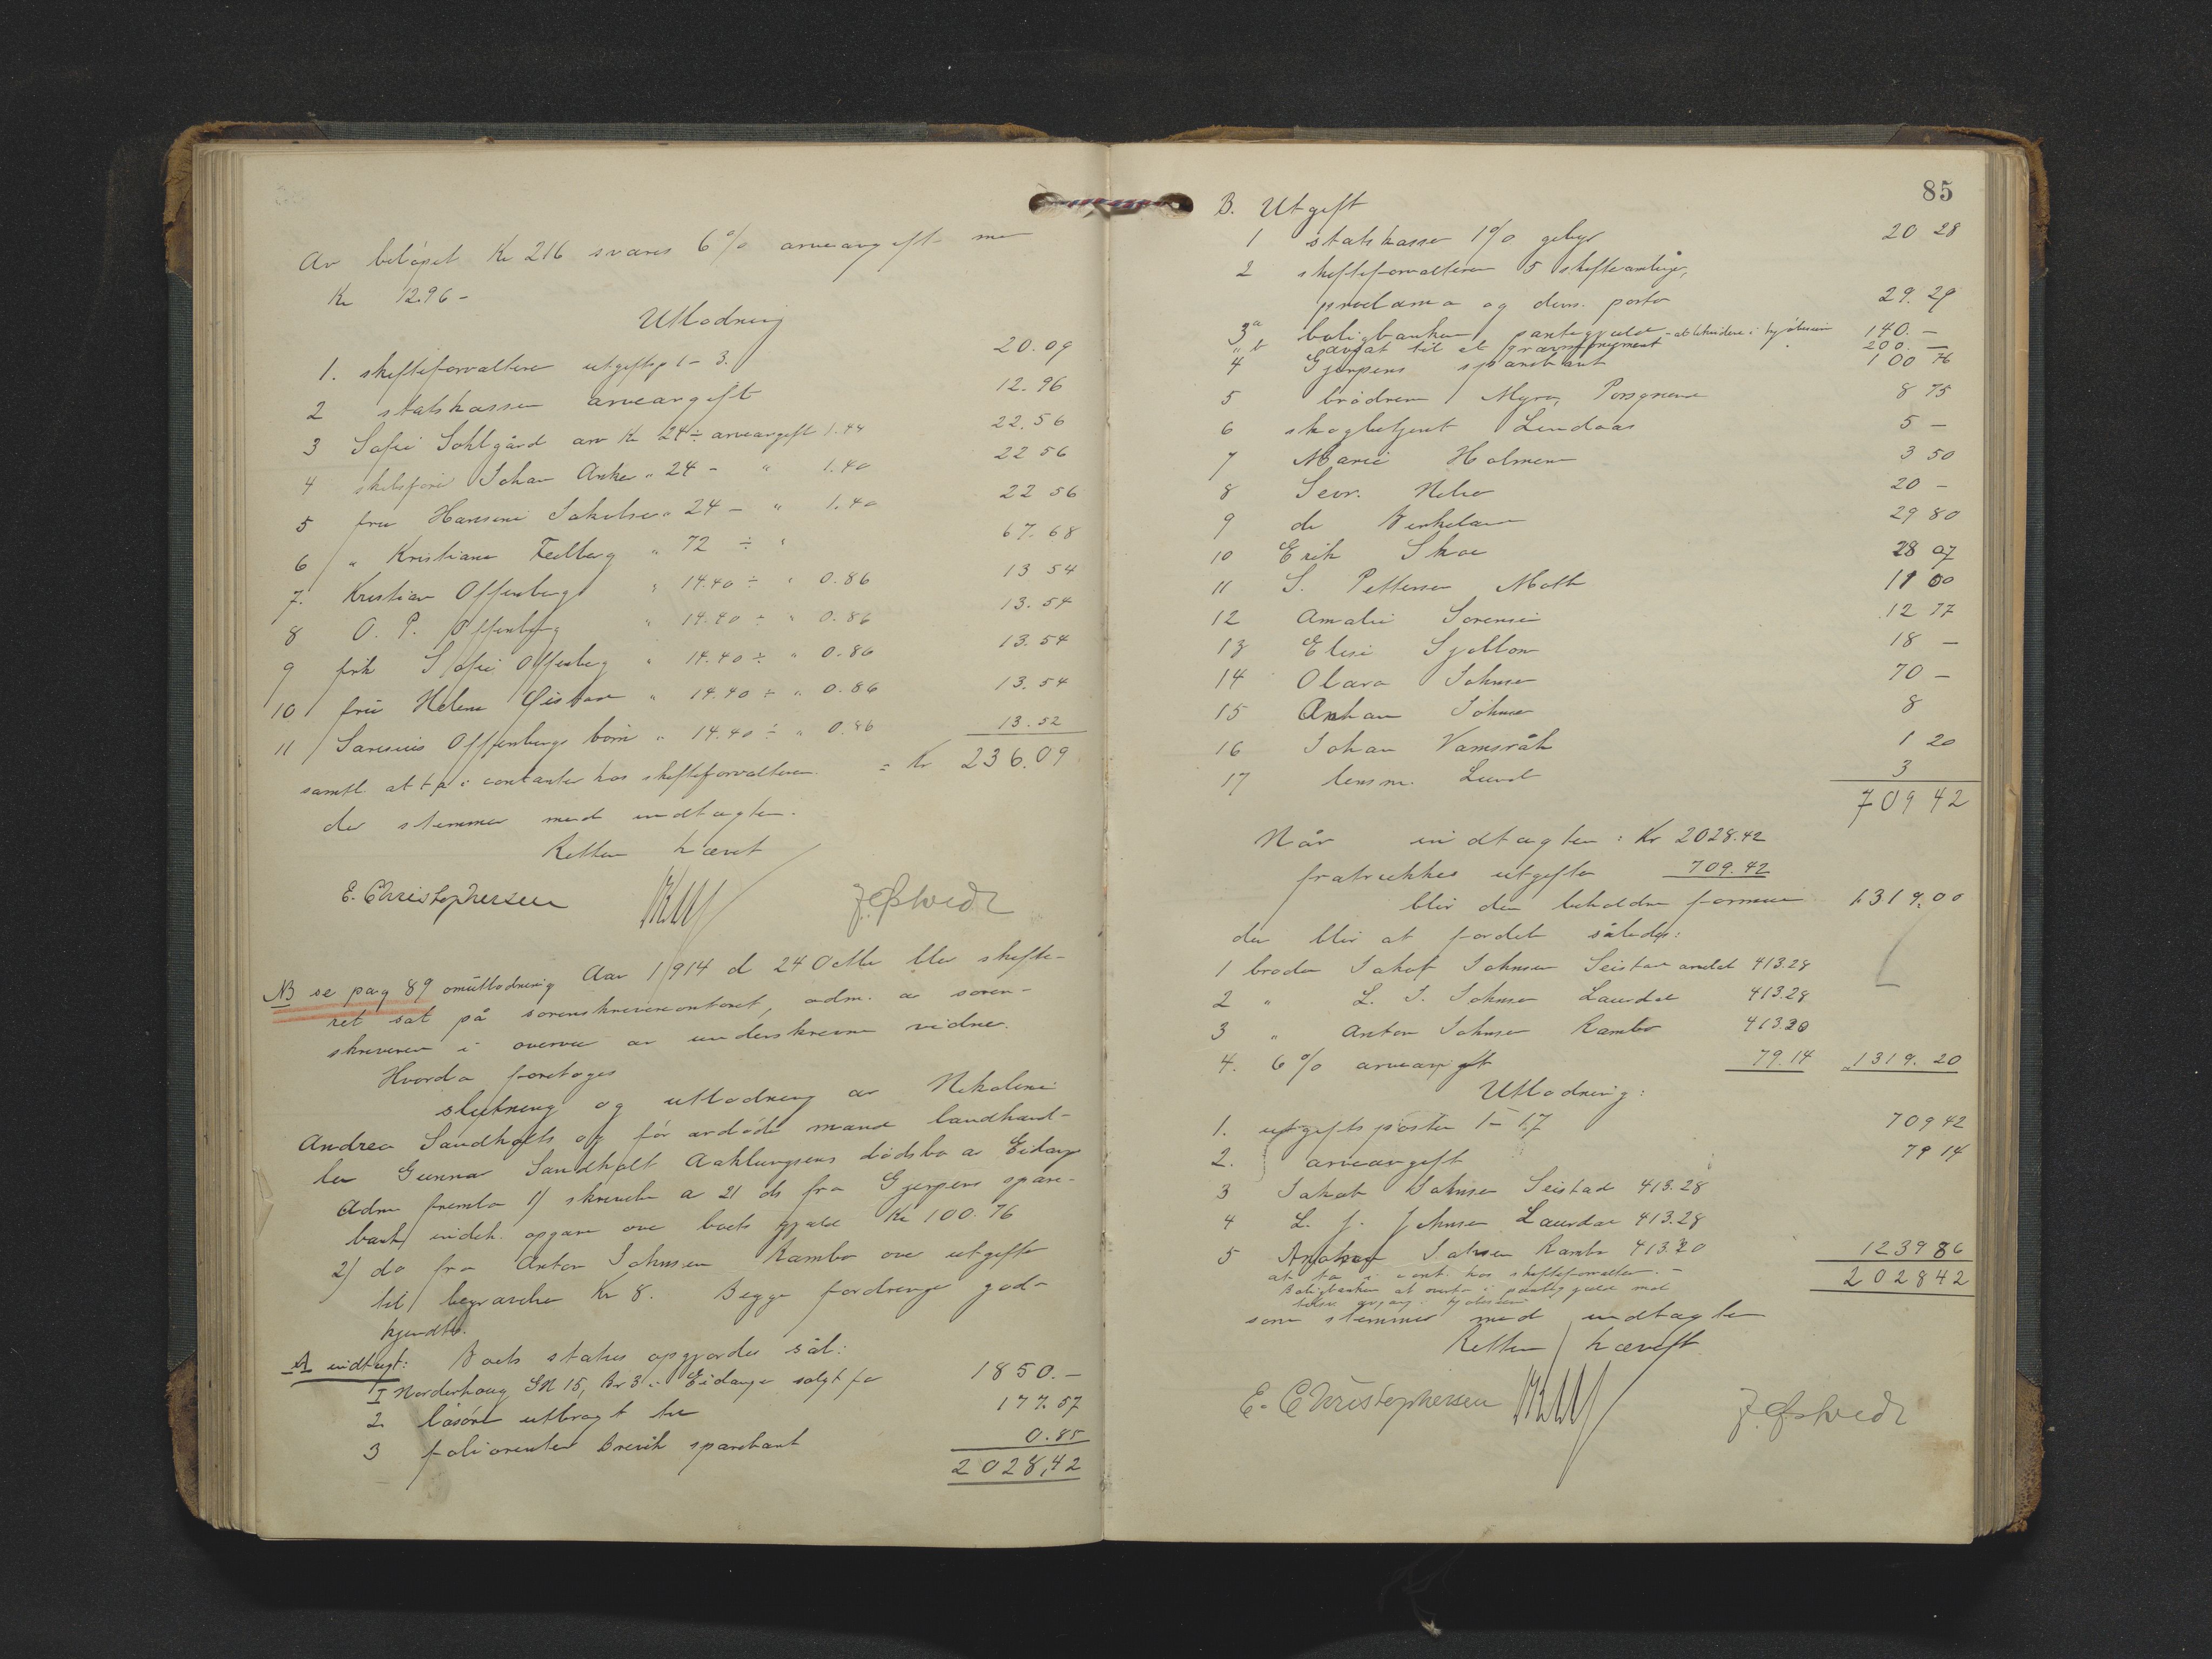 Av beløpet Kr 216 svares 6% arveavgift m
Kr 12.96 -
Utlodning
1. skifteforvalteren utgiftsp 1 - 3. 20.09
2 statskassen arveavgift 12.96
3 Sofie Sohlgård arv Kr 24 ÷ arveavgift 1.44 22.56
4 skibsfører Johan Anker " 24 - " 1.40 22 56
5 fru Hansine Jakobsen " 24 - " 1.40 22 56
6 " Kristiane Feelberg " 72 ÷ " 67.68
7. Kristian Offenberg " 14.40 ÷ " 0.86 13 54
8 O. P. Offenberg " 14.40 ÷ " 0.86 13.54
9 frk Sofie Offenberg " 14.40 ÷ " 0.86 13.54
10 fru Helene " 14.40 ÷ " 0.86 13.54
11 Offenbergs børn " 14.40 ÷ " 0.86 13.52
samtl. at få i contanter hos skifteforvalteren. = Kr 236.09
der stemmer med indtægten.
Retten hævet
E. Christophersen J. Østvedt
NB se pag 89 omutlodning Aar 1914 d 24 Octbr blev skifte-
ret sat på sorenskriverkontoret, adm. av soren-
skriveren i overvær av underskrevne vidner.
Hvorda foretages
slutning og utlodning av Nikoline
Andrea Sandholts og før avdøde mand landhand-
ler Gunnar Sandholt Aahlungsens dødsbo av Eidanger
Adm fremla 1/ skrivelse av 21 ds fra Gjerpens spare-
bank indeh. opgave over boets gjæld Kr 100.76
2/ do fra Anton Johnsen Rambo over utgifter
til begravelse Kr 8. Begge fordringer god-
kjendtes.
A indtægt: Boets status opgjordes sål:
1 Norderhaug GN 15, Br 3 i Eidanger solgt for 1850.-
2. løsøre utbragt til 177.57
3 foliorenter Brevik sparebank 0.85
2028,42
85
B. Utgift
1 statskassen 1% gebyr 20 28
2 skifteforvalteren 5 skiftesamlinger,
proclama og div. porto 29.29
3a boligbanken pantegjæld - at likvidere i kjøbesum 140.-
" b avsat til et gravmonument 200.-
4 Gjerpens sparebank 100 76
5 brødrene Myren, Porsgrund 8 75
6 skogbetjent Lundaas 5 -
7 Marie Holmen 3 50
8 20 -
9 do 29 80
10 Erik Skou 28 07
11 S. Pettersen Moth 11 00
12 Amalie Sørensen 12 77
13 Elise 18 -
14 Olava Johnsen 70 -
15 Anton Johnsen 8
16 Johan 1 20
17 lensm. Lund 3
709 42
Når indtægten: Kr 2028.42
fratrækkes utgiften 709.42
blir den beholdne formue 1319.00
der blir at fordele således:
1 broder Jakob Johnsen Seistad andel 413.28
2 " L. J. Johnsen Laurdal 413.28
3 " Anton Johnsen Rambo 413.20
4. 6% arveavgift 79.14 1319.20
Utlodning:
1. utgiftsposten 1 - 17 709 42
2. arveavgift 79 14
3 Jakob Johnsen Seistad 413.28
4 L. J. Johnsen Laurdal 413.28
5 Anton Johnsen Rambo 413.20 1239 86
at få i cont. hos skifteforvalter. - 202842
Boligbanken at overta i pantegjæld med
som stemmer med indtægten
Retten hævet
E. Christophersen J. Østvedt